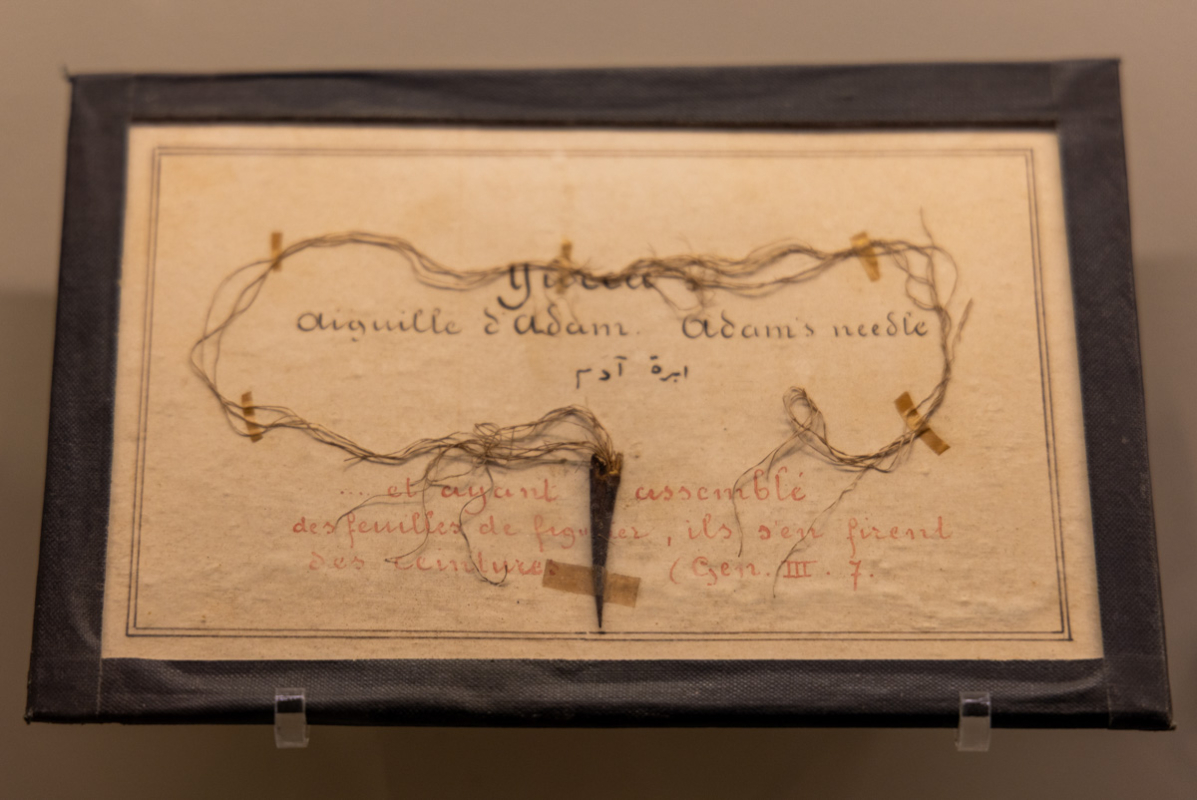 Aiguille d'Adam. Adam's needle
ابرة آدم
.... et ayant assemblé
des feuilles de figuier, ils s'en firent
des ceintures (Gen. III. 7.